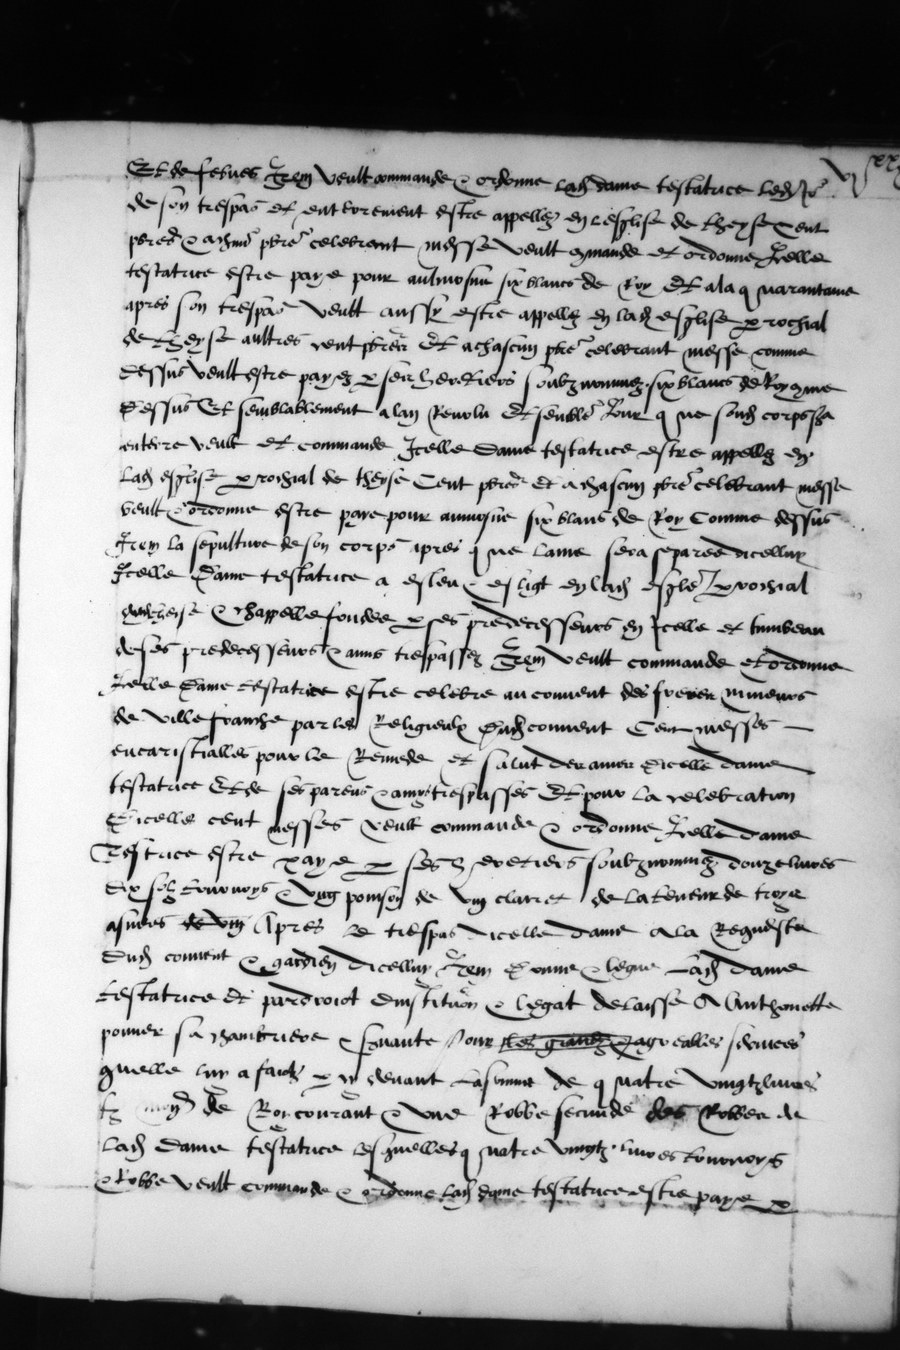 Et de febves Item veult commande & ordonne lad dame testatrice led Jo
de son trespas et enterrement estre appellez en lesglise de theyse Cent
pbres & achun pbre celebrant messe veult commande et ordonne Icelle
testatrice estre paye pour aulmosne six blancs de Roy Et a la quarantaine
apres son trespas veult aussy estre appellez en lad esglise parrochial
de theyse aultres cent pbres Et a chascun pbre celebrant messe comme
dessus veult estre payez p ses heretiers soubznommez six blancs de Roy comme
dessus Et semblablement a lan Revolu Et semble Jour que sond corps sera
enterre veult et commande Icelle Dame testatrice estre appellez en
Lad esglise parrochial de theyse Cent pbres et a chascun pbre celebrant messe
veult & ordonne estre paye pour aumosne six blans de Roy Comme dessus
Item la sepulture de son corps apres que lame sera separee dicelluy
Icelle Dame testatrice a esleu & esligt en lad esgle parrochial
de theyse & Chappelle fondee p ses predecesseurs en Icelle et tumbeau
de ses predecesseurs & amis trespassez Item veult commande et ordonne
Icelle Dame testatrice estre celebre au couvent des freres mineurs
de villefranche par les Religieulx Dud couvent Cent messes
eucaristialles pour le Remede et salut de lame dicelle dame
testatrice Et de ses parens & amys trespasses Et pour la celebration
Dicelles cent messes veult commande & ordonne Icelle dame
Testrice estre paye p ses heretiers soubznommez douze livres
dix solz tournoys & Ung ponson de vin claret de la teneur de troys
asnees de vin Apres le trespas dicelle dame a la Requeste
Dud couvent & gardien dicelluy Item Donne & legue Lad dame
testatrice et par droiot dinstitution & legat delaisse A Anthonette
ponner sa chambriere & servante pour les grandz & agreables services
quelle luy a faictz p cy devant La somme de quatre vingtz livres
tz monn de Roy courant & une Robbe seconde des Robbes de
Lad Dame testatrice lesquelles quatre vingtz livres tournoys
& Robbe veult commande & ordonne lad dame testatrice estre paye p